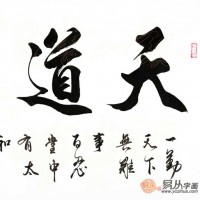 天道
一勤
天下
無難
事
百忍
堂中
有太
和
易从字画